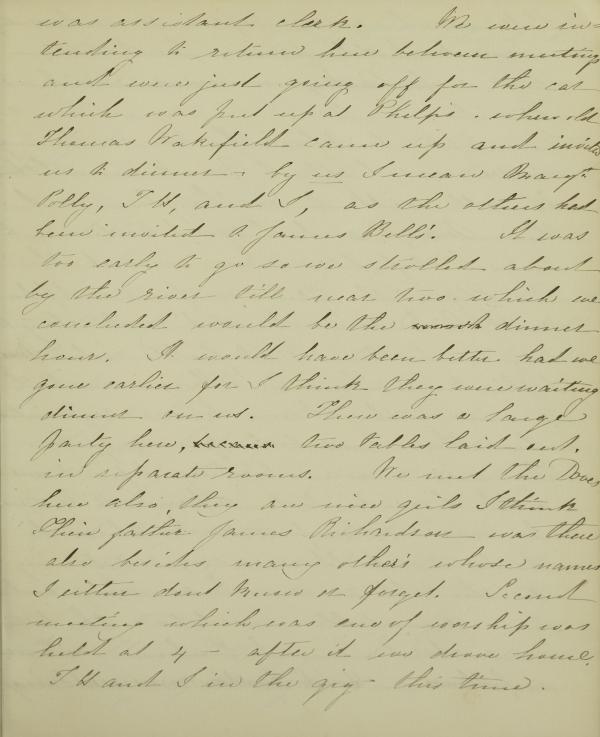 was assistant clerk. We were in=
tending to return here between meetings
and were just going off for the car
which was put up at Phelps. when old
Thomas Wakefield came up and invited
us to dinner - by us I mean
Polly, T H, and I, as the others had
been invited to James Bell's. It was
too early to go so we strolled about
by the river till near two. which we
concluded would be the dinner
hour. It would have been better had we
gone earlier for I think they were waiting
dinner on us. There was a large
party here, two tables laid out.
in separate rooms. We met the
here also, they are nice girls I think
Their father James Richardson was there
also besides many others whose names
I either dont know or forget. Second
meeting which was one of worship was
held at 4 - after it we drove home.
T H and I in the gig this time.